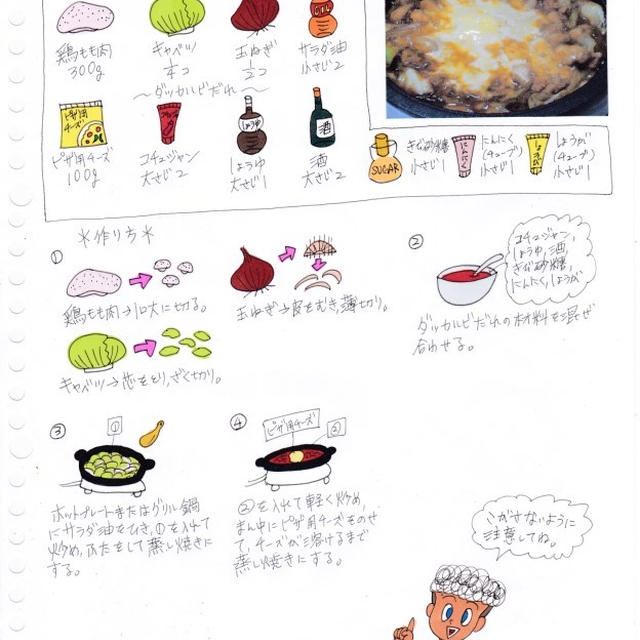 鶏もも肉
300g
キャベツ
1/4コ
玉ねぎ
1/2コ
サラダ油
小さじ2
〜ダッカルビだれ〜
ピザ用
チーズ
ピザ用チーズ
100g
コチュジャン
大さじ2
しょうゆ
しょうゆ
大さじ1
酒
酒
大さじ2
SUGAR
きび砂糖
小さじ1
にんにく
にんにく
(チューブ)
小さじ1
しょうが
しょうが
(チューブ)
小さじ1
*作り方*
①
鶏もも肉→一口大に切る。
玉ねぎ→皮をむき,薄切り。
キャベツ→芯をとり,ざく切り。
②
コチュジャン,
しょうゆ,酒,
きび砂糖,
にんにく,しょうが
ダッカルビだれの材料を混ぜ
合わせる。
③
①
ホットプレートまたはグリル鍋
にサラダ油をひき,①を入れて
炒め,ふたをして蒸し焼きに
する。
④
ピザ用チーズ
②
②を入れて軽く炒め,
まん中にピザ用チーズをのせ
て,チーズが溶けるまで
蒸し焼きにする。
こがさないように
注意してね。